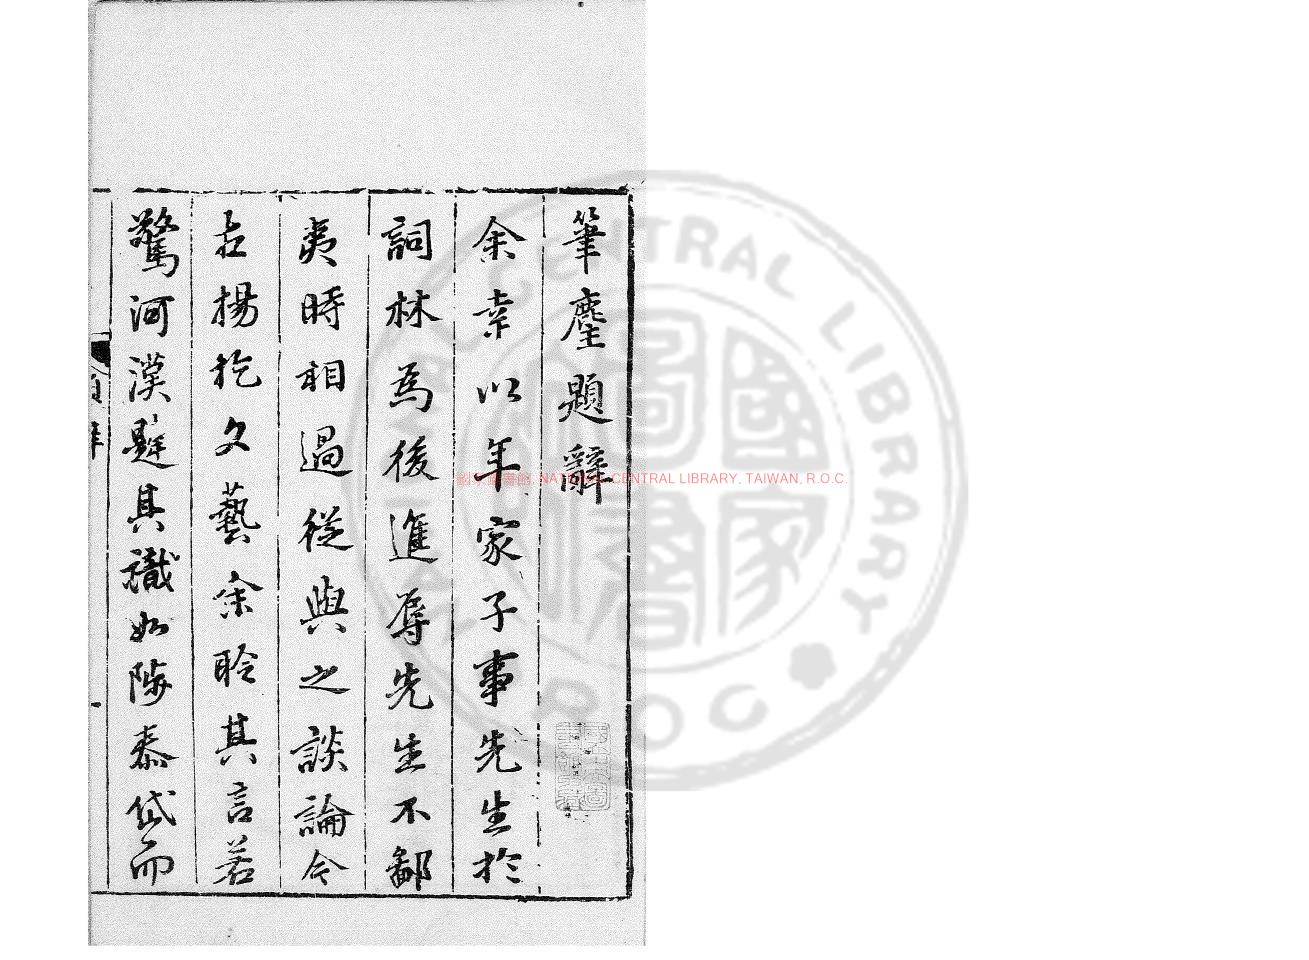 筆麈題辭
余幸以年家子事先生於
詞林為後進辱先生不鄙
夷時相過從與之談論今
古揚扢文藝余聆其言若
驚河漢挹其識如陟泰岱而
題辭
國家圖書館, NATIONAL CENTRAL LIBRARY, TAIWAN, R.O.C.
NATIONAL CENTRAL LIBRARY
R.O.C.
國家圖書